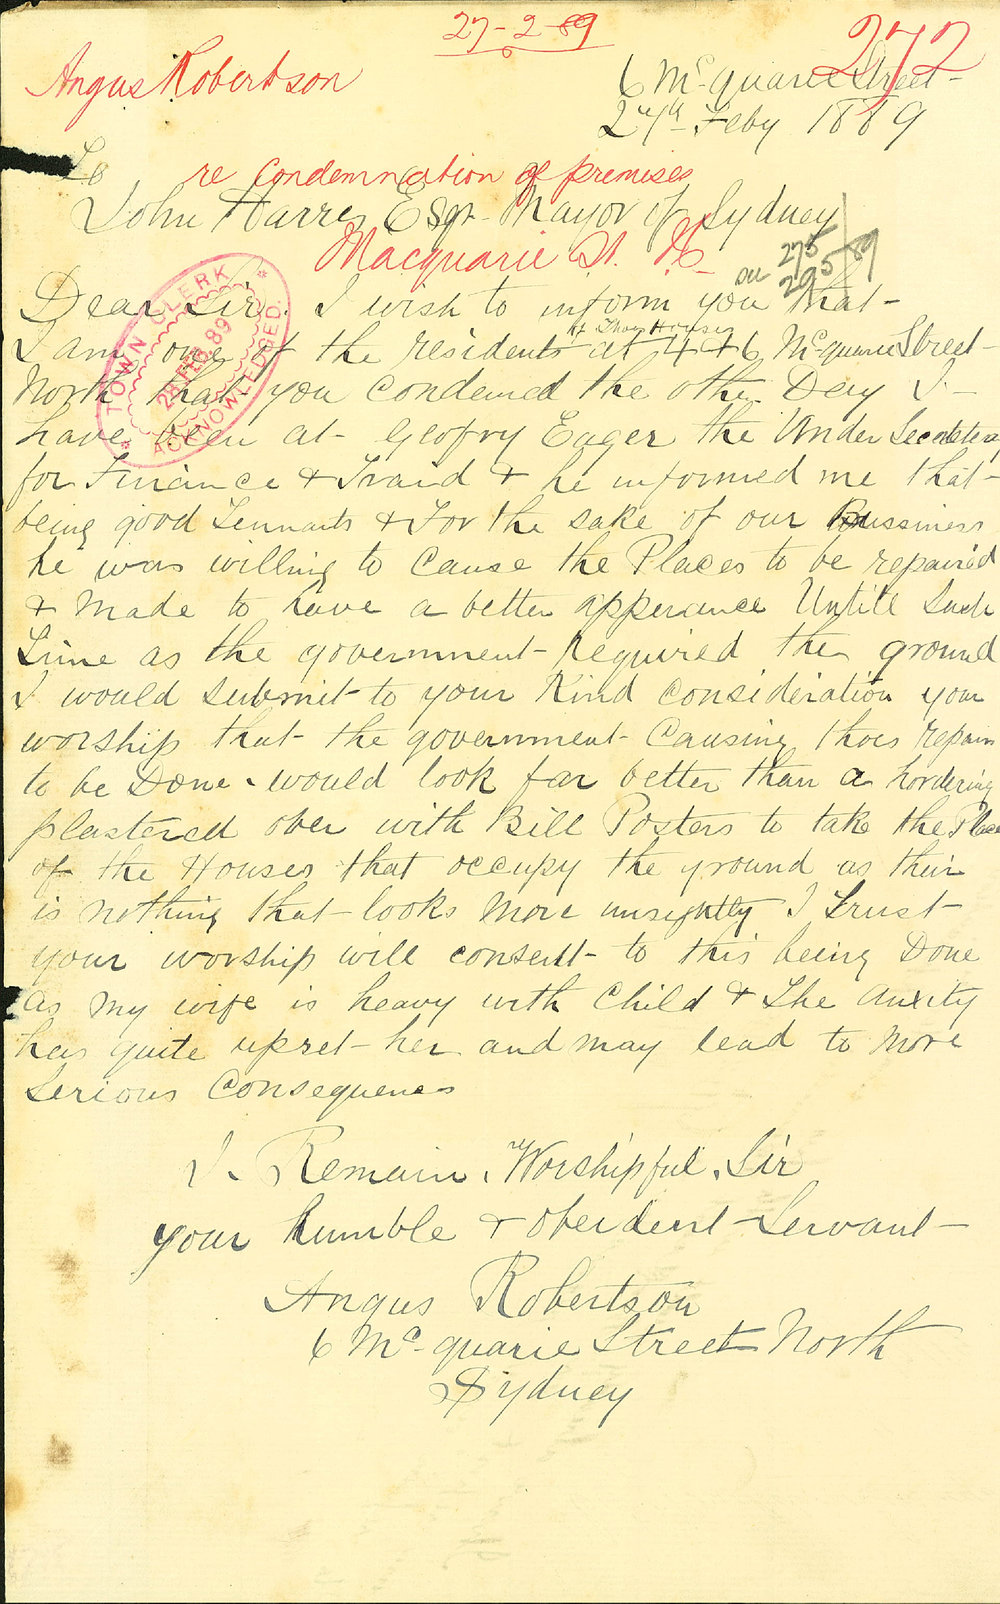 27-2-89
272
Angus Robertson
6 Mc.quarie Street
27th Feby 1889
To
re condemnation of premises
John Harres Esqr Mayor of Sydney
Macquarie St. N
on 275
295/89
TOWN CLERK
28 FEB 89
ACKNOWLEDGED.
Dear Sir. I wish to inform you that
I am one of the residents at 4 & 6 Mc.quarie Street
North that you condemed the other Day I
have been at Geofry Eager the Under Secretary
for Finance & Traid & he informed me that
being good Tennants & For the sake of our Bussiness
he was willing to Cause the Places to be repaired
& Made to have a better apperance Untill Such
Time as the government Required the ground
I would submit to your Kind consideration your
worship that the government Causing thoes repairs
to be Done would look far better than a hordering
plastered over with Bill Posters to take the Place
of the Houses that occupy the ground as their
is nothing that looks More unsightly I Trust
your worship will consent to this being Done
as My wife is heavy with Child & The anxity
has quite upset her and may lead to More
Serious Consequences
I. Remain, Worshipful, Sir
your humble & oberdent Servant
Angus Robertson
6 Mc.quarie Street North
Sydney